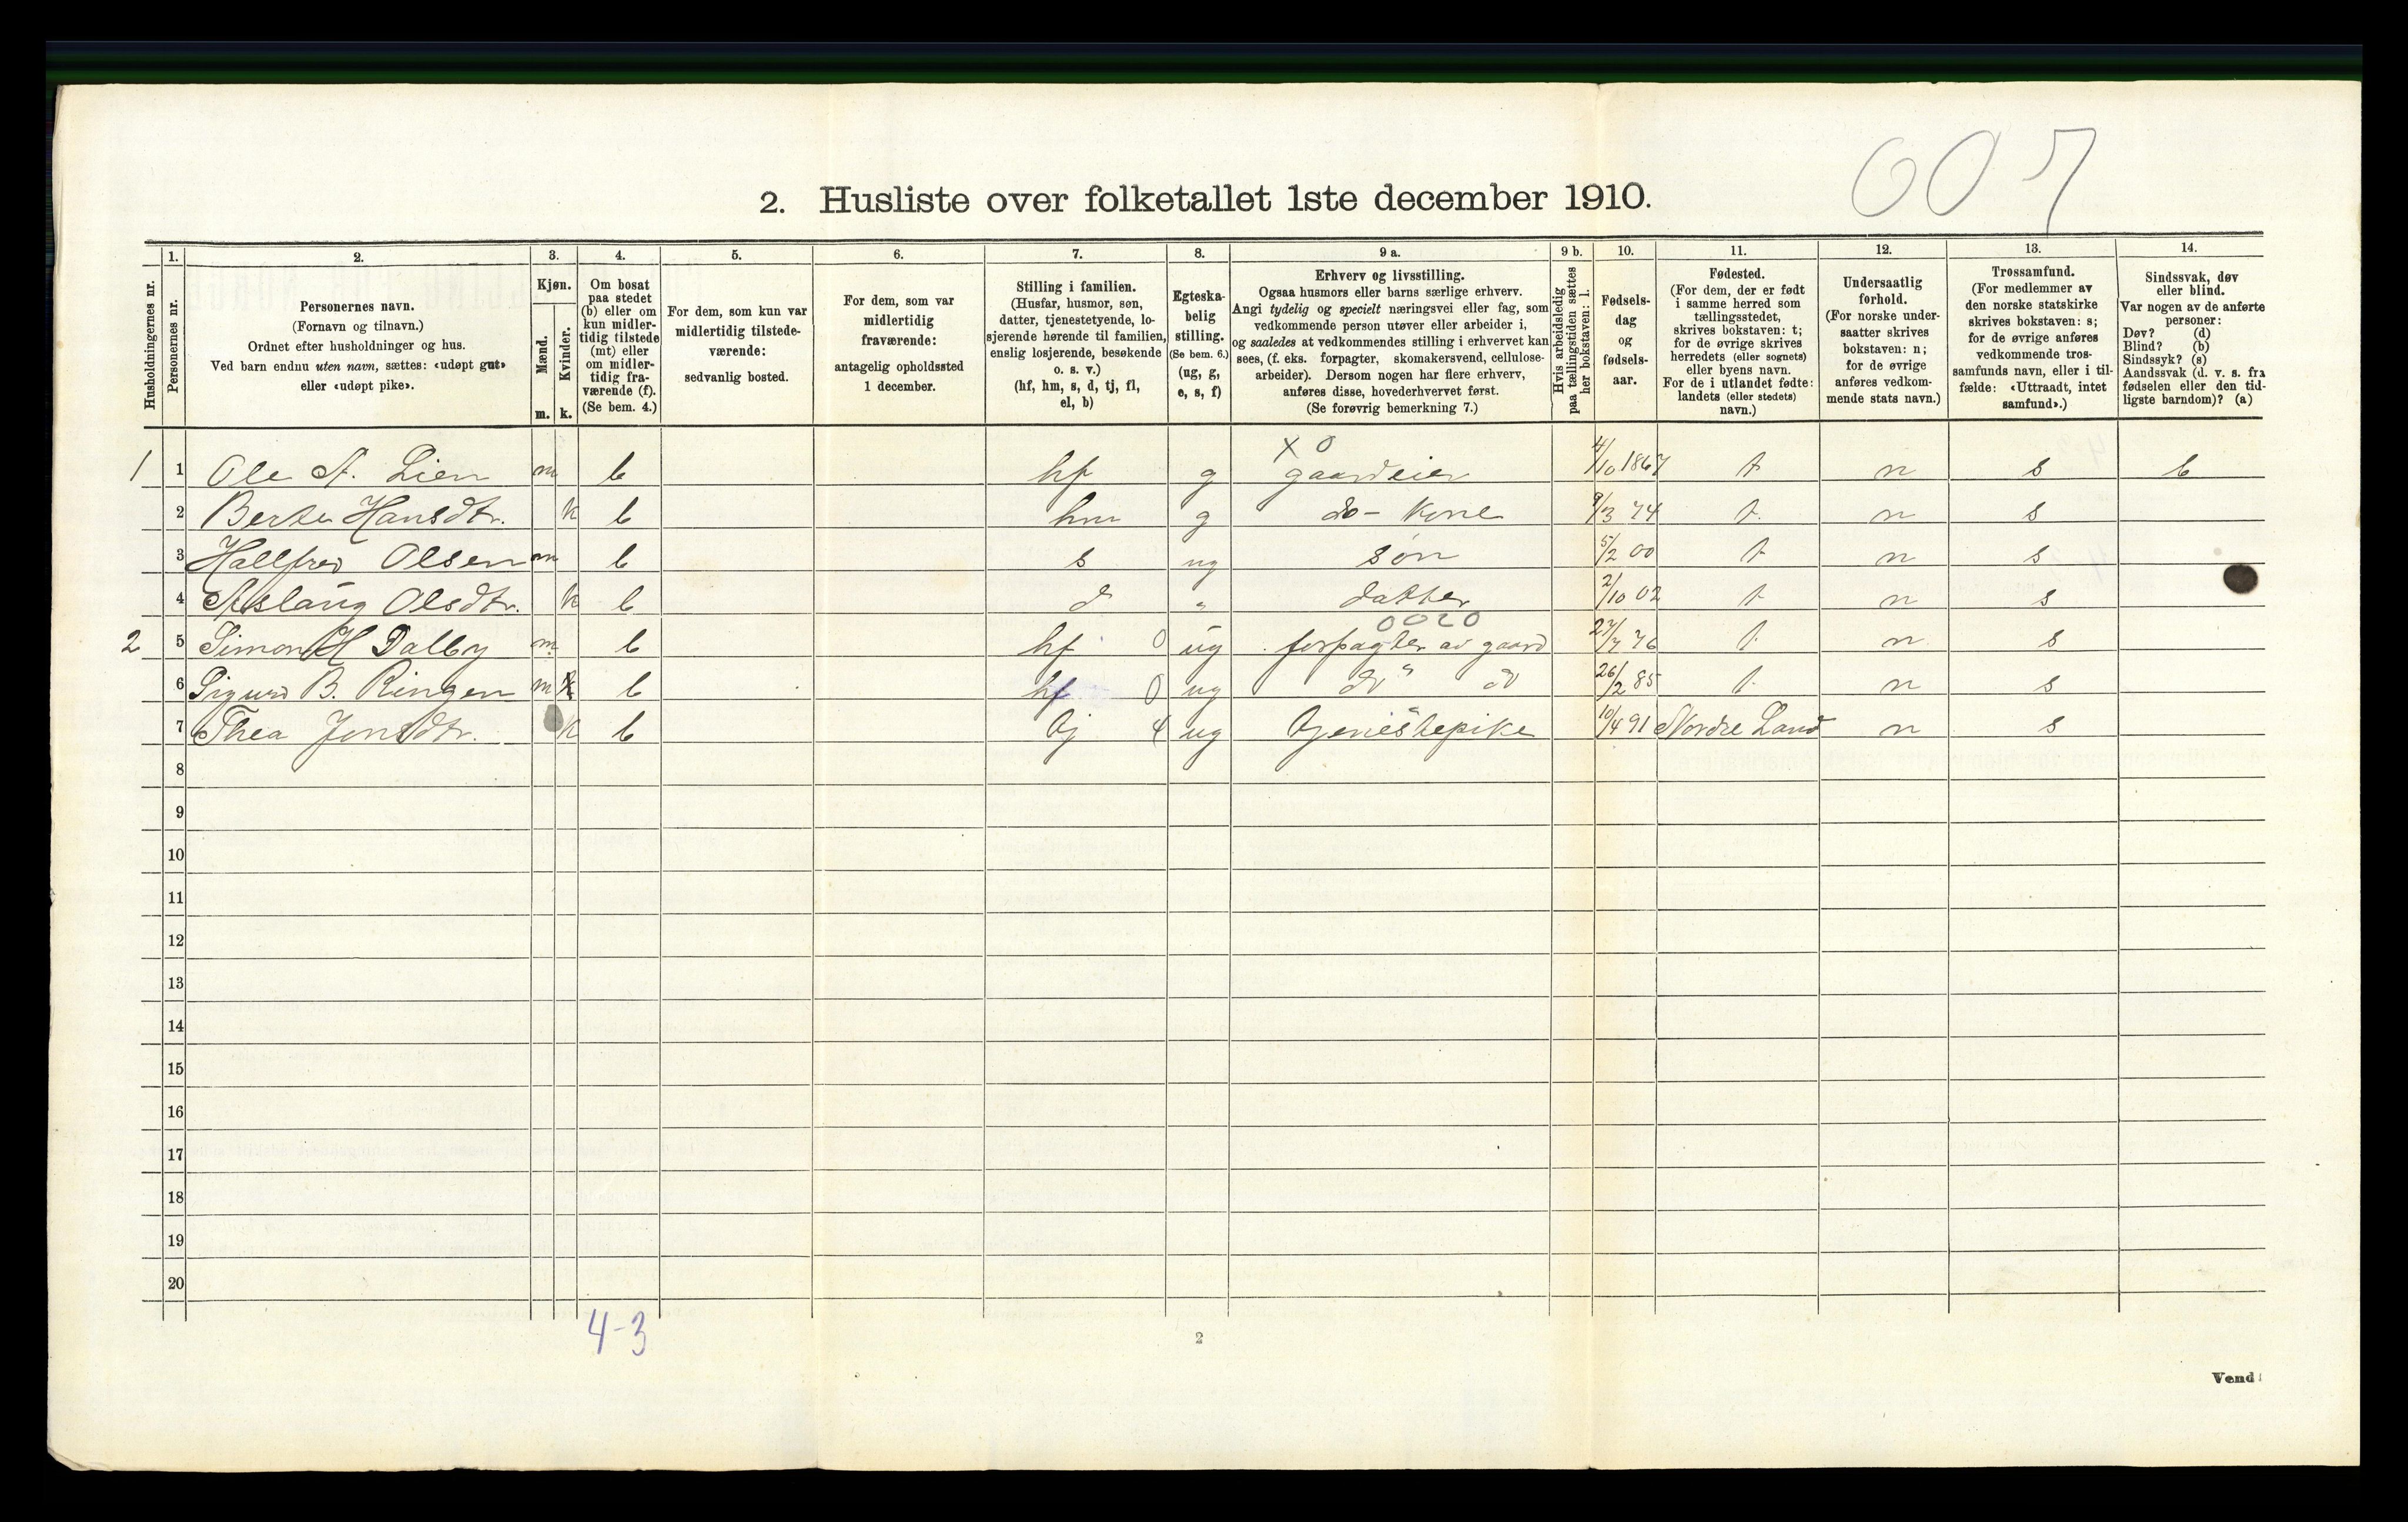 007
2. Husliste over folketallet 1ste december 1910.
Husholdningernes nr.
1. Personernes nr.
2. Personernes navn. (Fornavn og tilnavn.) Ordnet efter husholdninger og hus. Ved barn endnu uten navn, sættes: «udøpt gut» eller «udøpt pike».
3. Kjøn. Mænd. m. Kvinder. k.
4. Om bosat paa stedet (b) eller om kun midlertidig tilstede (mt) eller om midlertidig fraværende (f). (Se bem. 4.)
5. For dem, som kun var midlertidig tilstedeværende: sedvanlig bosted.
6. For dem, som var midlertidig fraværende: antagelig opholdssted 1 december.
7. Stilling i familien. (Husfar, husmor, søn, datter, tjenestetyende, losjerende hørende til familien, enslig losjerende, besøkende o. s. v.) (hf, hm, s, d, tj, fl, el, b)
8. Egteskabelig stilling. (Se bem. 6.) (ug, g, e, s, f)
9 a. Erhverv og livsstilling. Ogsaa husmors eller barns særlige erhverv. Angi tydelig og specielt næringsvei eller fag, som vedkommende person utøver eller arbeider i, og saaledes at vedkommendes stilling i erhvervet kan sees, (f. eks. forpagter, skomakersvend, cellulosearbeider). Dersom nogen har flere erhverv, anføres disse, hovederhvervet først. (Se forøvrig bemerkning 7.)
9 b. Hvis arbeidsledig paa tællingstiden sættes her bokstaven: l.
10. Fødselsdag og fødselsaar.
11. Fødested. (For dem, der er født i samme herred som tællingsstedet, skrives bokstaven: t; for de øvrige skrives herredets (eller sognets) eller byens navn. For de i utlandet fødte: landets (eller stedets) navn.)
12. Undersaatlig forhold. (For norske undersaatter skrives bokstaven: n; for de øvrige anføres vedkommende stats navn.)
13. Trossamfund. (For medlemmer av den norske statskirke skrives bokstaven: s; for de øvrige anføres vedkommende trossamfunds navn, eller i tilfælde: «Uttraadt, intet samfund».)
14. Sindssvak, døv eller blind. Var nogen av de anførte personer: Døv? (d) Blind? (b) Sindssyk? (s) Aandssvak (d. v. s. fra fødselen eller den tidligste barndom)? (a)
X 0
1 1 Ole A. Lien m b hf g gaardeier 4/10 1867 t n s b
2 Berte Hansdtr. k b hm g do- Kone 9/3 74 t. n s
3 Hallfred Olsen m b s ug søn 5/2 00 t n s
4 Aslaug Olsdtr. k b d " datter 2/10 02 t n s
0020
2 5 Simon H Dalby m. b hf 0 ug forpagter av gaard 27/7 76 t. n s
6 Sigurd B. Ringen m k b hf 0 ug do " do 26/2 85 t. n s
7 Thea Jonsdtr. k b tj 4 ug tjenestepike 10/4 91 Nordre Land n s
8
9
10
11
12
13
14
15
16
17
18
19
20
4-3
2
Vend!